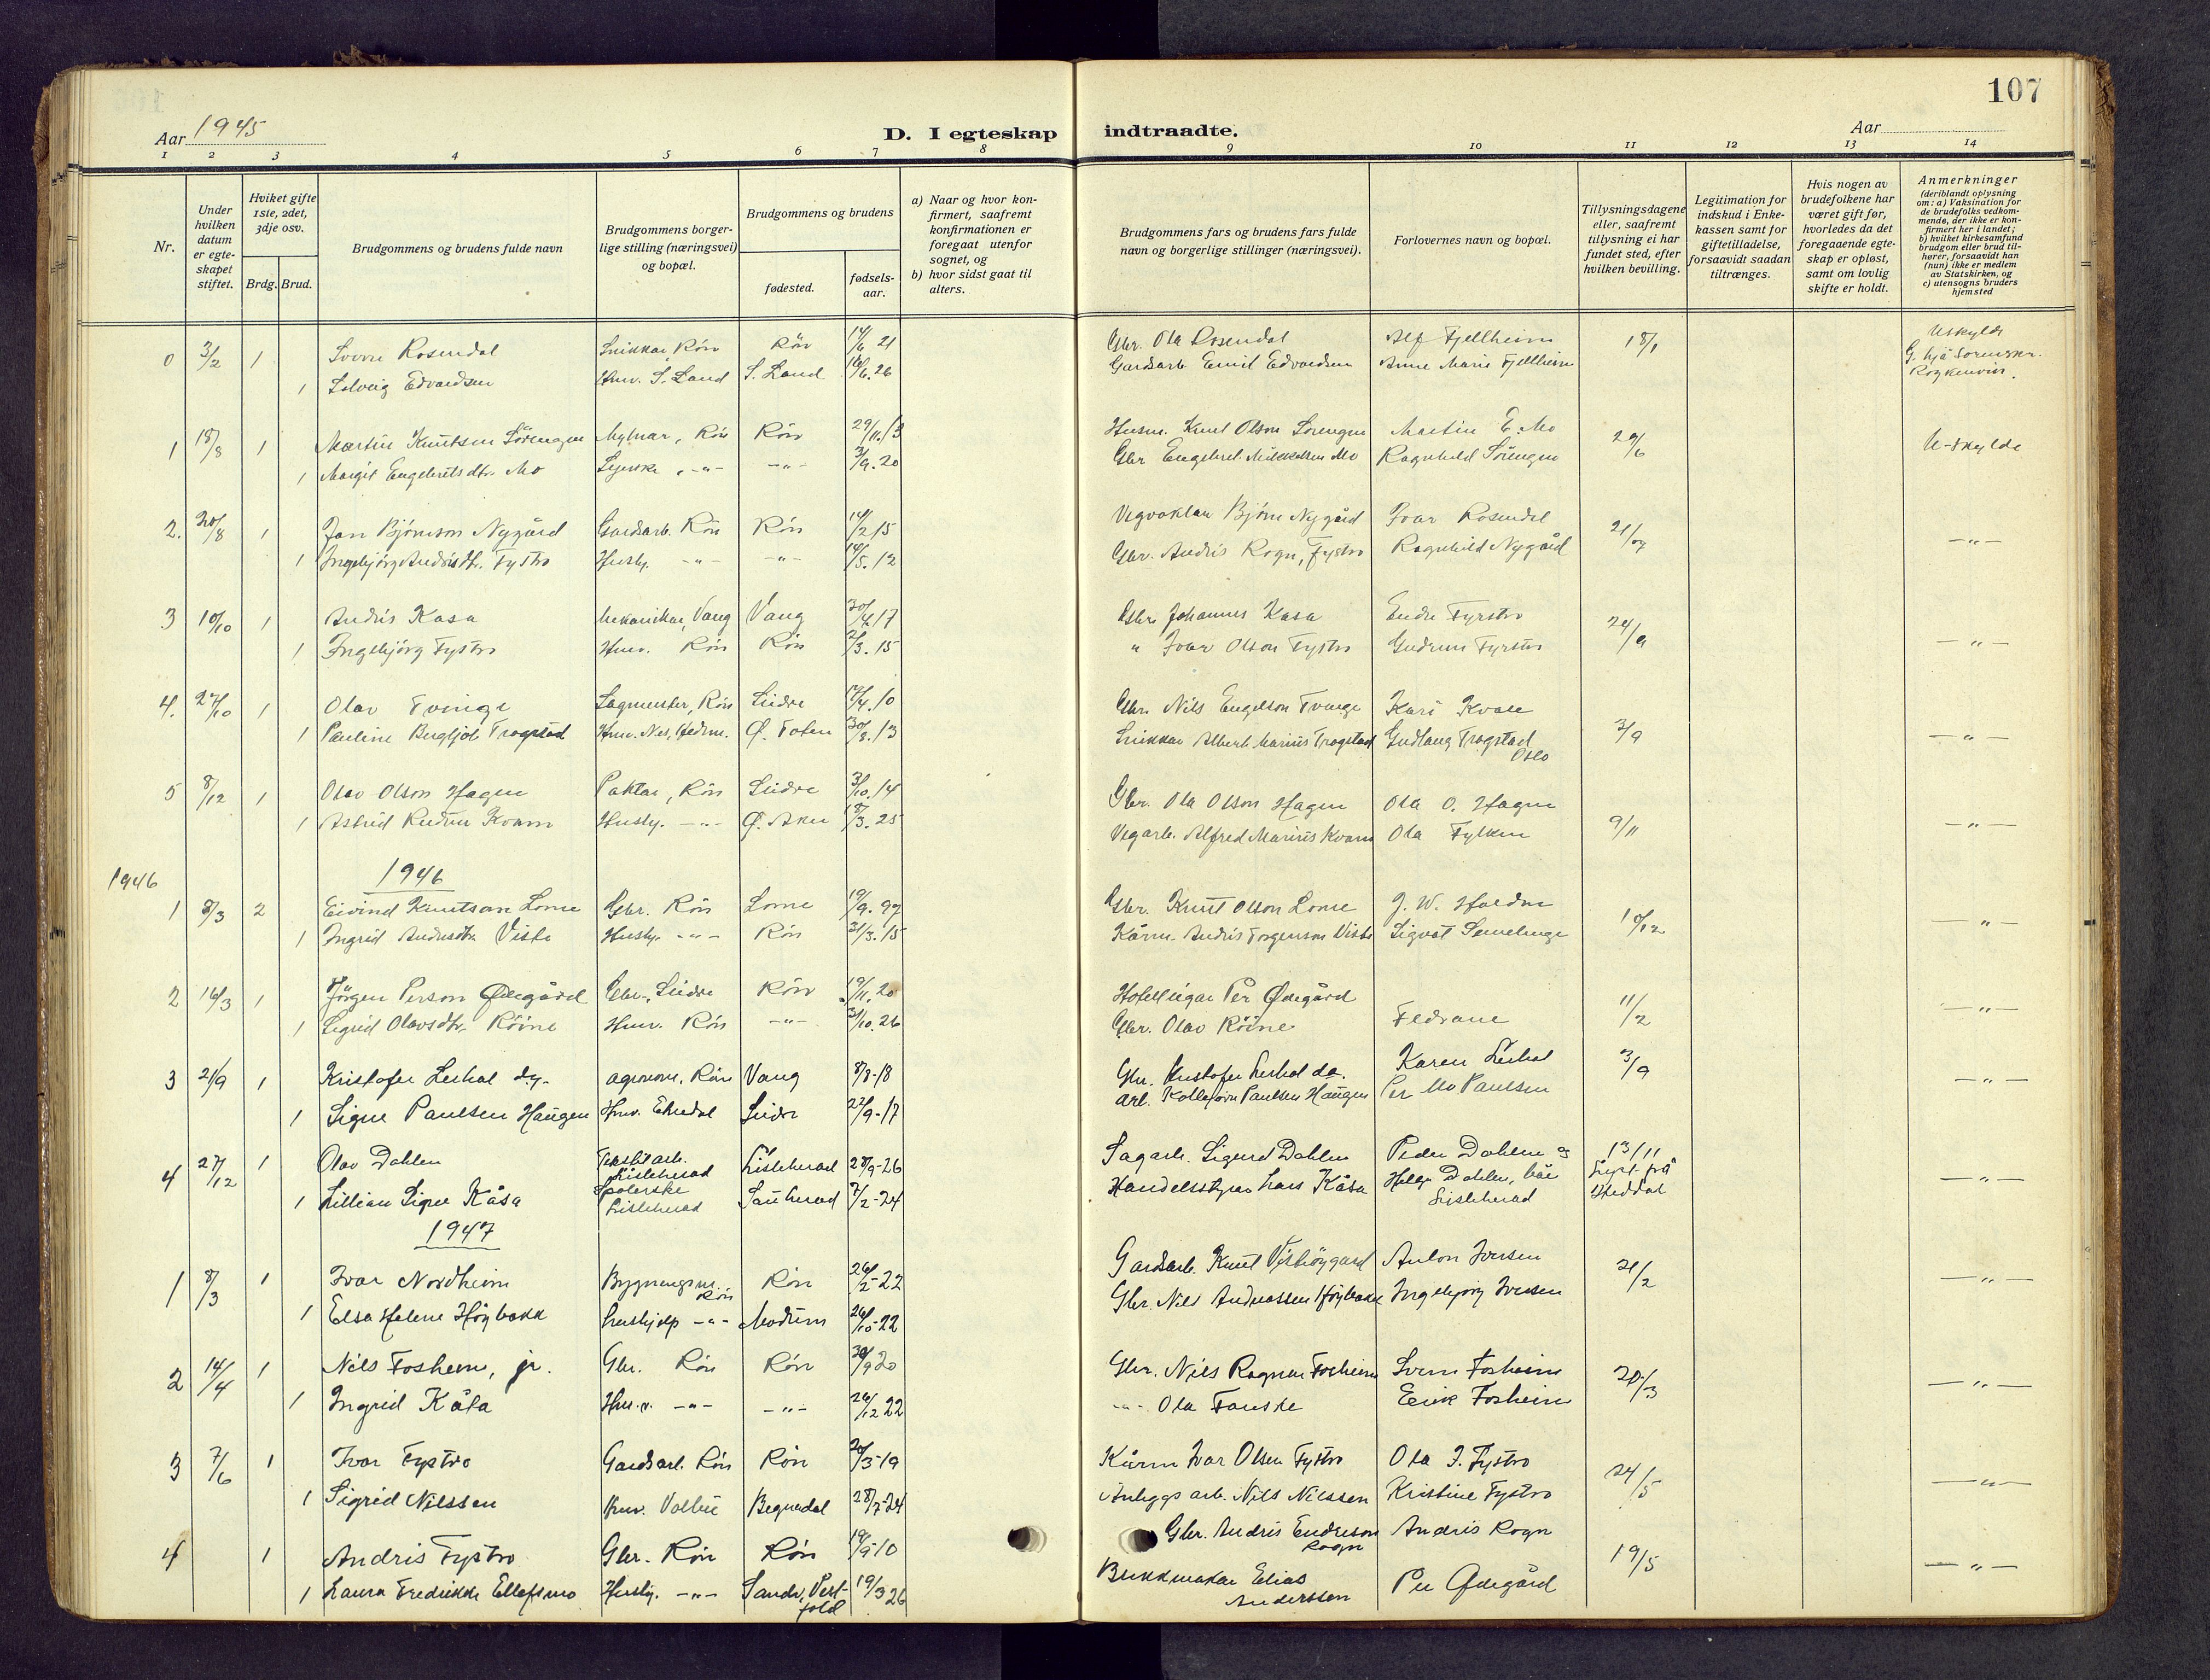 107
Aar 1945
D. I egteskap indtraadte.
Aar
1 2 3 4 5 6 7 8 9 10 11 12 13 14
Nr.
Under hvilken datum er egteskapet stiftet.
Hviket gifte 1ste, 2det, 3dje osv.
Brdg. Brud.
Brudgommens og brudens fulde navn
Brudgommens borgerlige stilling (næringsvei) og bopæl.
Brudgommens og brudens
fødested.
fødselsaar.
a) Naar og hvor konfirmert, saafremt konfirmationen er foregaat utenfor sognet, og
b) hvor sidst gaat til alters.
Brudgommens fars og brudens fars fulde navn og borgerlige stillinger (næringsvei).
Forlovernes navn og bopæl.
Tillysningsdagene eller, saafremt tillysning ei har fundet sted, efter hvilken bevilling.
Legitimation for indskud i Enkekassen samt for giftetilladelse, forsaavidt saadan tiltrænges.
Hvis nogen av brudefolkene har været gift før, hvorledes da det foregaaende egteskap er opløst, samt om lovlig skifte er holdt.
Anmerkninger
(deriblandt oplysning om: a) Vaksination for de brudefolks vedkommende, der ikke er konfirmert her i landet; b) hvilket kirkesamfund brudgom eller brud tilhører, forsaavidt han (hun) ikke er medlem av Statskirken, og c) utensogns bruders hjemsted
0 3/2 1 Sverre Rosendal Snikkar, Røn Røn 14/6 21 Gbr. Ola Rosendal Alf Fjellheim 18/1 Uskylde
1 Solveig Edvardsen Husv. S. Land S. Land 16/6. 26 Gardsarb. Emil Edvardsen Anne Marie Fjellheim G. hjå Sorenskr. Roykenvik.
1 18/8 1 Martin Knutsen Sørengen Mylnar, Røn Røn 29/11.13 Husm. Knut Olson Sørengen Martin E. Mo 29/6 U-skylde
1 Margit Engebrets dtr. Mo Syerske -"- -"- 3/9.20 Gbr Engebret Mikkelsen Mo Ragnhild Sørengen
2. 30/8 1 Jon Bjørnson Nygård Gardsarb. Røn Røn 14/2 15 Vegvoktar Bjørn Nygård Ivar Rosendal 21/7 -"-
1 Ingebjørg Andrisdtr. Fystro Husby. -"- -"- 14/5.12 Gbr. Andris Rogn, Fystro Ragnhild Nygård
3 10/10 1 Andris Kasa Mekanikar, Vang Vang 30/4 17 Gbr. Johannes Kasa Endre Fystro 24/9 -"-
1 Ingebjørg Fystro Husv. Røn Røn 2/3.15 " Ivar Olson Fystro Gudrun Fystro
4. 27/10 1 Olav Tvinge Sagmester, Røn Slidre 12/4.10 Gbr. Nils Engelson Tvinge Kari Kvale 3/9 -"-
1 Pauline Bergljot Trogstad Husv. Nes, Hedm. Ø. Toten 30/8.13 Snikkar Albert Marius Trogstad Gudlaug Trogstad Oslo
5 8/12 1 Olav Olson Hagen Paktar, Røn Slidre 3/10.14 Gbr. Ola Olson Hagen Ola O. Hagen 9/11 -"-
1 Astrid Kvam Husby. -"- Ø. Aker 18/3.25 Vegarb. Alfred Marinus Kvam Ola Fylken
1946
1946
1 8/3 2 Eivind Knutson Lome Gbr. Røn Lome 19/9.97 Gbr. Knut Olson Lome J. W. 10/12 "
1 Ingrid Andrisdtr. Viste Husby. -"- Røn 21/3.15 Kårm. Andris Torgerson Viste Sigvat Semelenge
2 16/3 1 Jörgen Person Ødegård Gbr., Slidre Røn 19/11.20 Hotelleigar Per Ødegård 11/2 -"-
1 Sigrid Olavsdtr. Röine Husv. Røn -"- 31/10.26 Gbr. Olav Röine Fedrane
3 21/9 1 Kristofer Lerhol d.y. agronom, Røn Vang 8/8-18 Gbr. Kristofer Lerhol d.e. Karen Lerhol 3/9 -"-
1 Signe Paulsen Haugen Husv. Etnedal Slidre 22/9-17 Arb. Kolbjørn Paulsen Haugen Per Mo Paulsen
4 27/12 1 Olav Dahlen Tekstilarb. Lisleherad Lisleherad 28/9-26 Sagarb. Sigurd Dahlen Peder Dahlen og 13/11 Lyst frå Heddal -"-
1 Lillian Signe Kåsa Spolerske Lisleherad Sauherad 7/2-24 Handelsstyrar Lars Kåsa Helge Dahlen, båe Lisleherad
1947
1 8/3 1 Ivar Nordheim Bygningssn. Røn Røn 26/2-22 Gardsarb. Knut Vistehøygard Anton Iversen 21/2 -"-
1 Elsa Helene Høybakk hushjelp -"- Modum 26/10-22 Gbr. Nils Andreassen Høybakk Ingebjørg Iversen
2 14/4 1 Nils Fosheim, jr. Gbr. Røn Røn 30/9 20 Gbr. Nils Ragnar Fosheim Sverre Fosheim 20/3 -"-
1 Ingrid Kåta Hus.v. -"- -"- 26/12 22 -"- Ola Fauske Eirik Fosheim
3 7/6 1 Ivar Fystro Gardsarb. Røn Røn 20/3-19 Kårm Ivar Olsen Fystro Ola I. Fystro 24/5 -"-
1 Sigrid Nilssen Husv. Volbu Begnadal 28/7-24 Anleggsarb. Nils Nilssen Kristine Fystro
4 1 Andris Fystro Gbr. Røn Røn 19/5 10 Gbr. Andris Endreson Rogn Andris Rogn 19/5 -"-
1 Laura Fredrikke Ellefsmo Husby. -"- Sande, Vestfold 19/3 26 Bunkmakar Elias Anderssen Per Ødegård